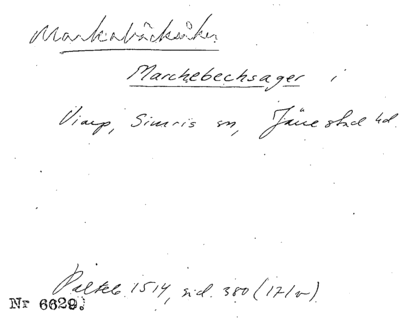 Markabäcksåker
Marchebechsager i
Viarp, Simris sn, Järrestad hd
Palteb. 1514, sid. 380 (171v)
Nr 6629.